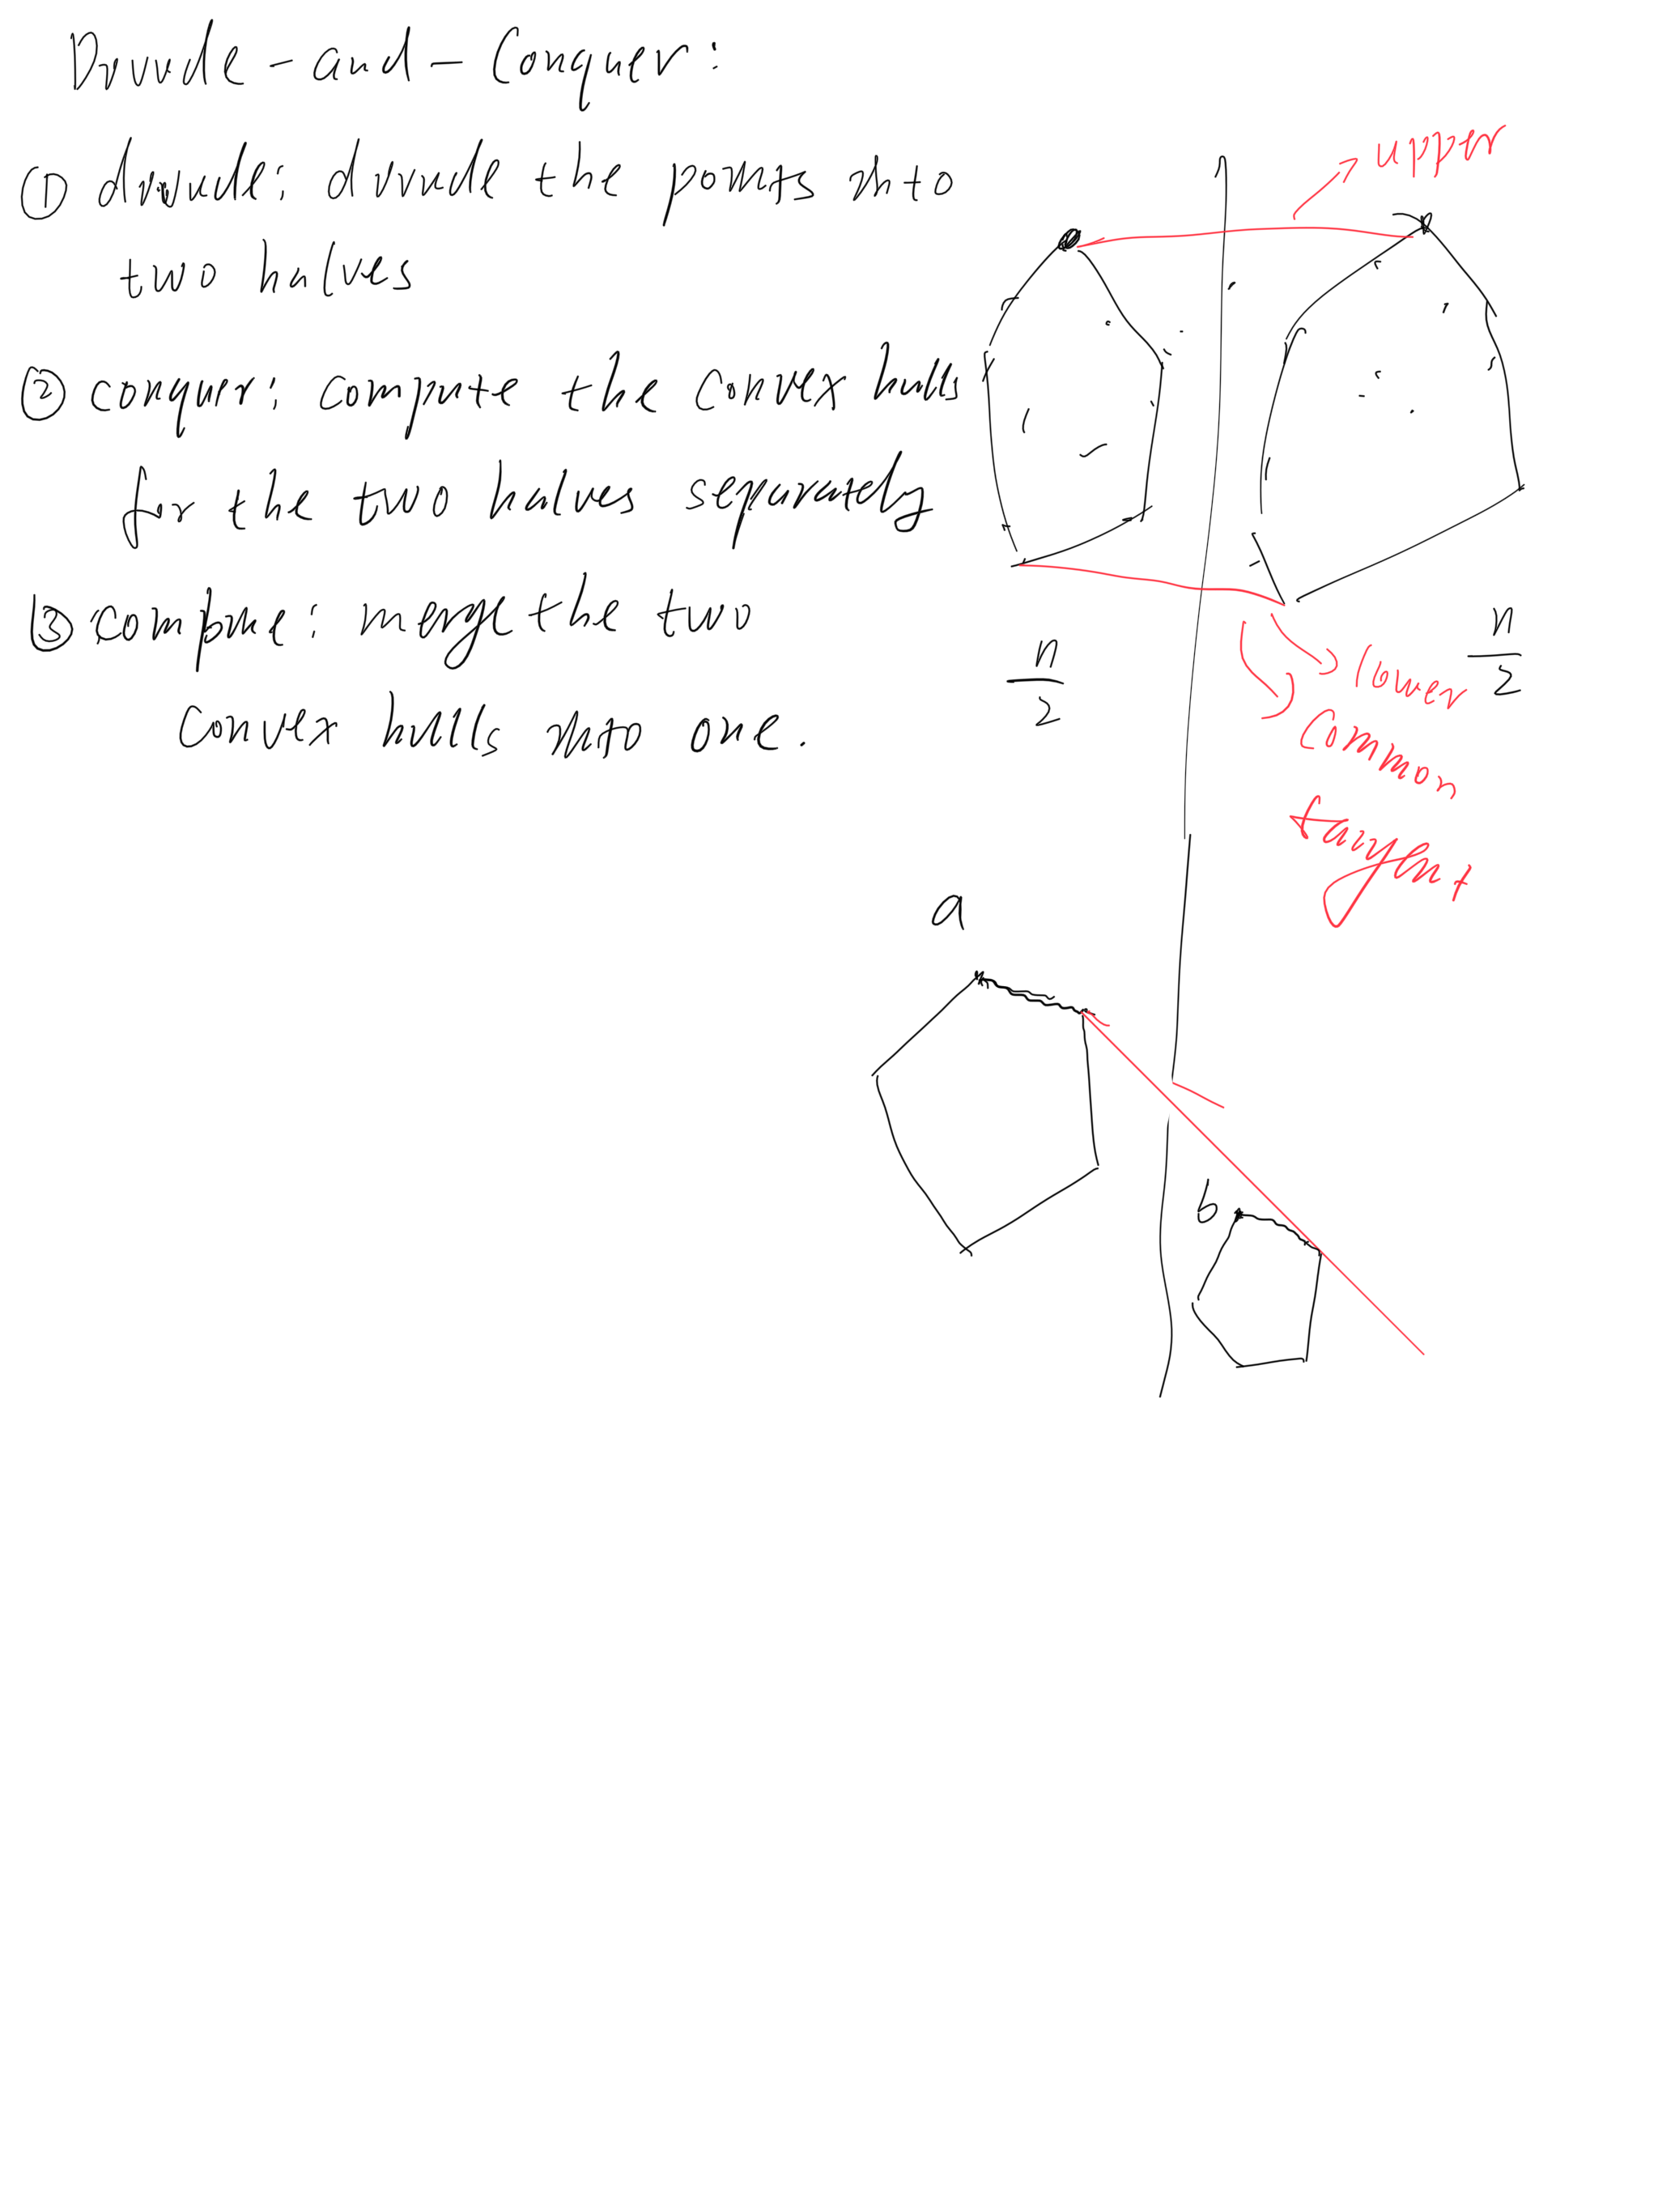 Divide-and-Conquer:
① divide: divide the points into
two halves
② conquer: compute the convex hulls
for the two halves separately
③ combine: merge the two
convex hulls into one.
upper
n/2
n/2
lower
common
tangent
a
b